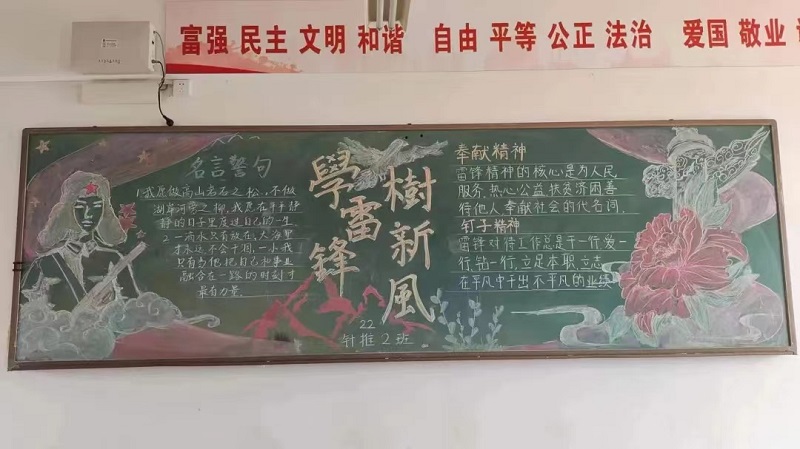 富强 民主 文明 和谐 自由 平等 公正 法治 爱国 敬业
名言警句
1.我愿做高山岩石之松,不做
湖岸河旁之柳,我愿在
静的日子里度过自己的一生。
2.一滴水只有放在大海里
才永远不会干涸,一个人
只有当他把自己和事业
融合在一起的时刻才
最有力量。
學雷鋒
樹新風
22
针推2班
奉献精神
雷锋精神的核心是为人民
服务,热心公益,扶贫济困,善
待他人,奉献社会的代名词。
钉子精神
雷锋对待工作总是干一行爱一
行,钻一行,立足本职,立志
在平凡中干出不平凡的业绩